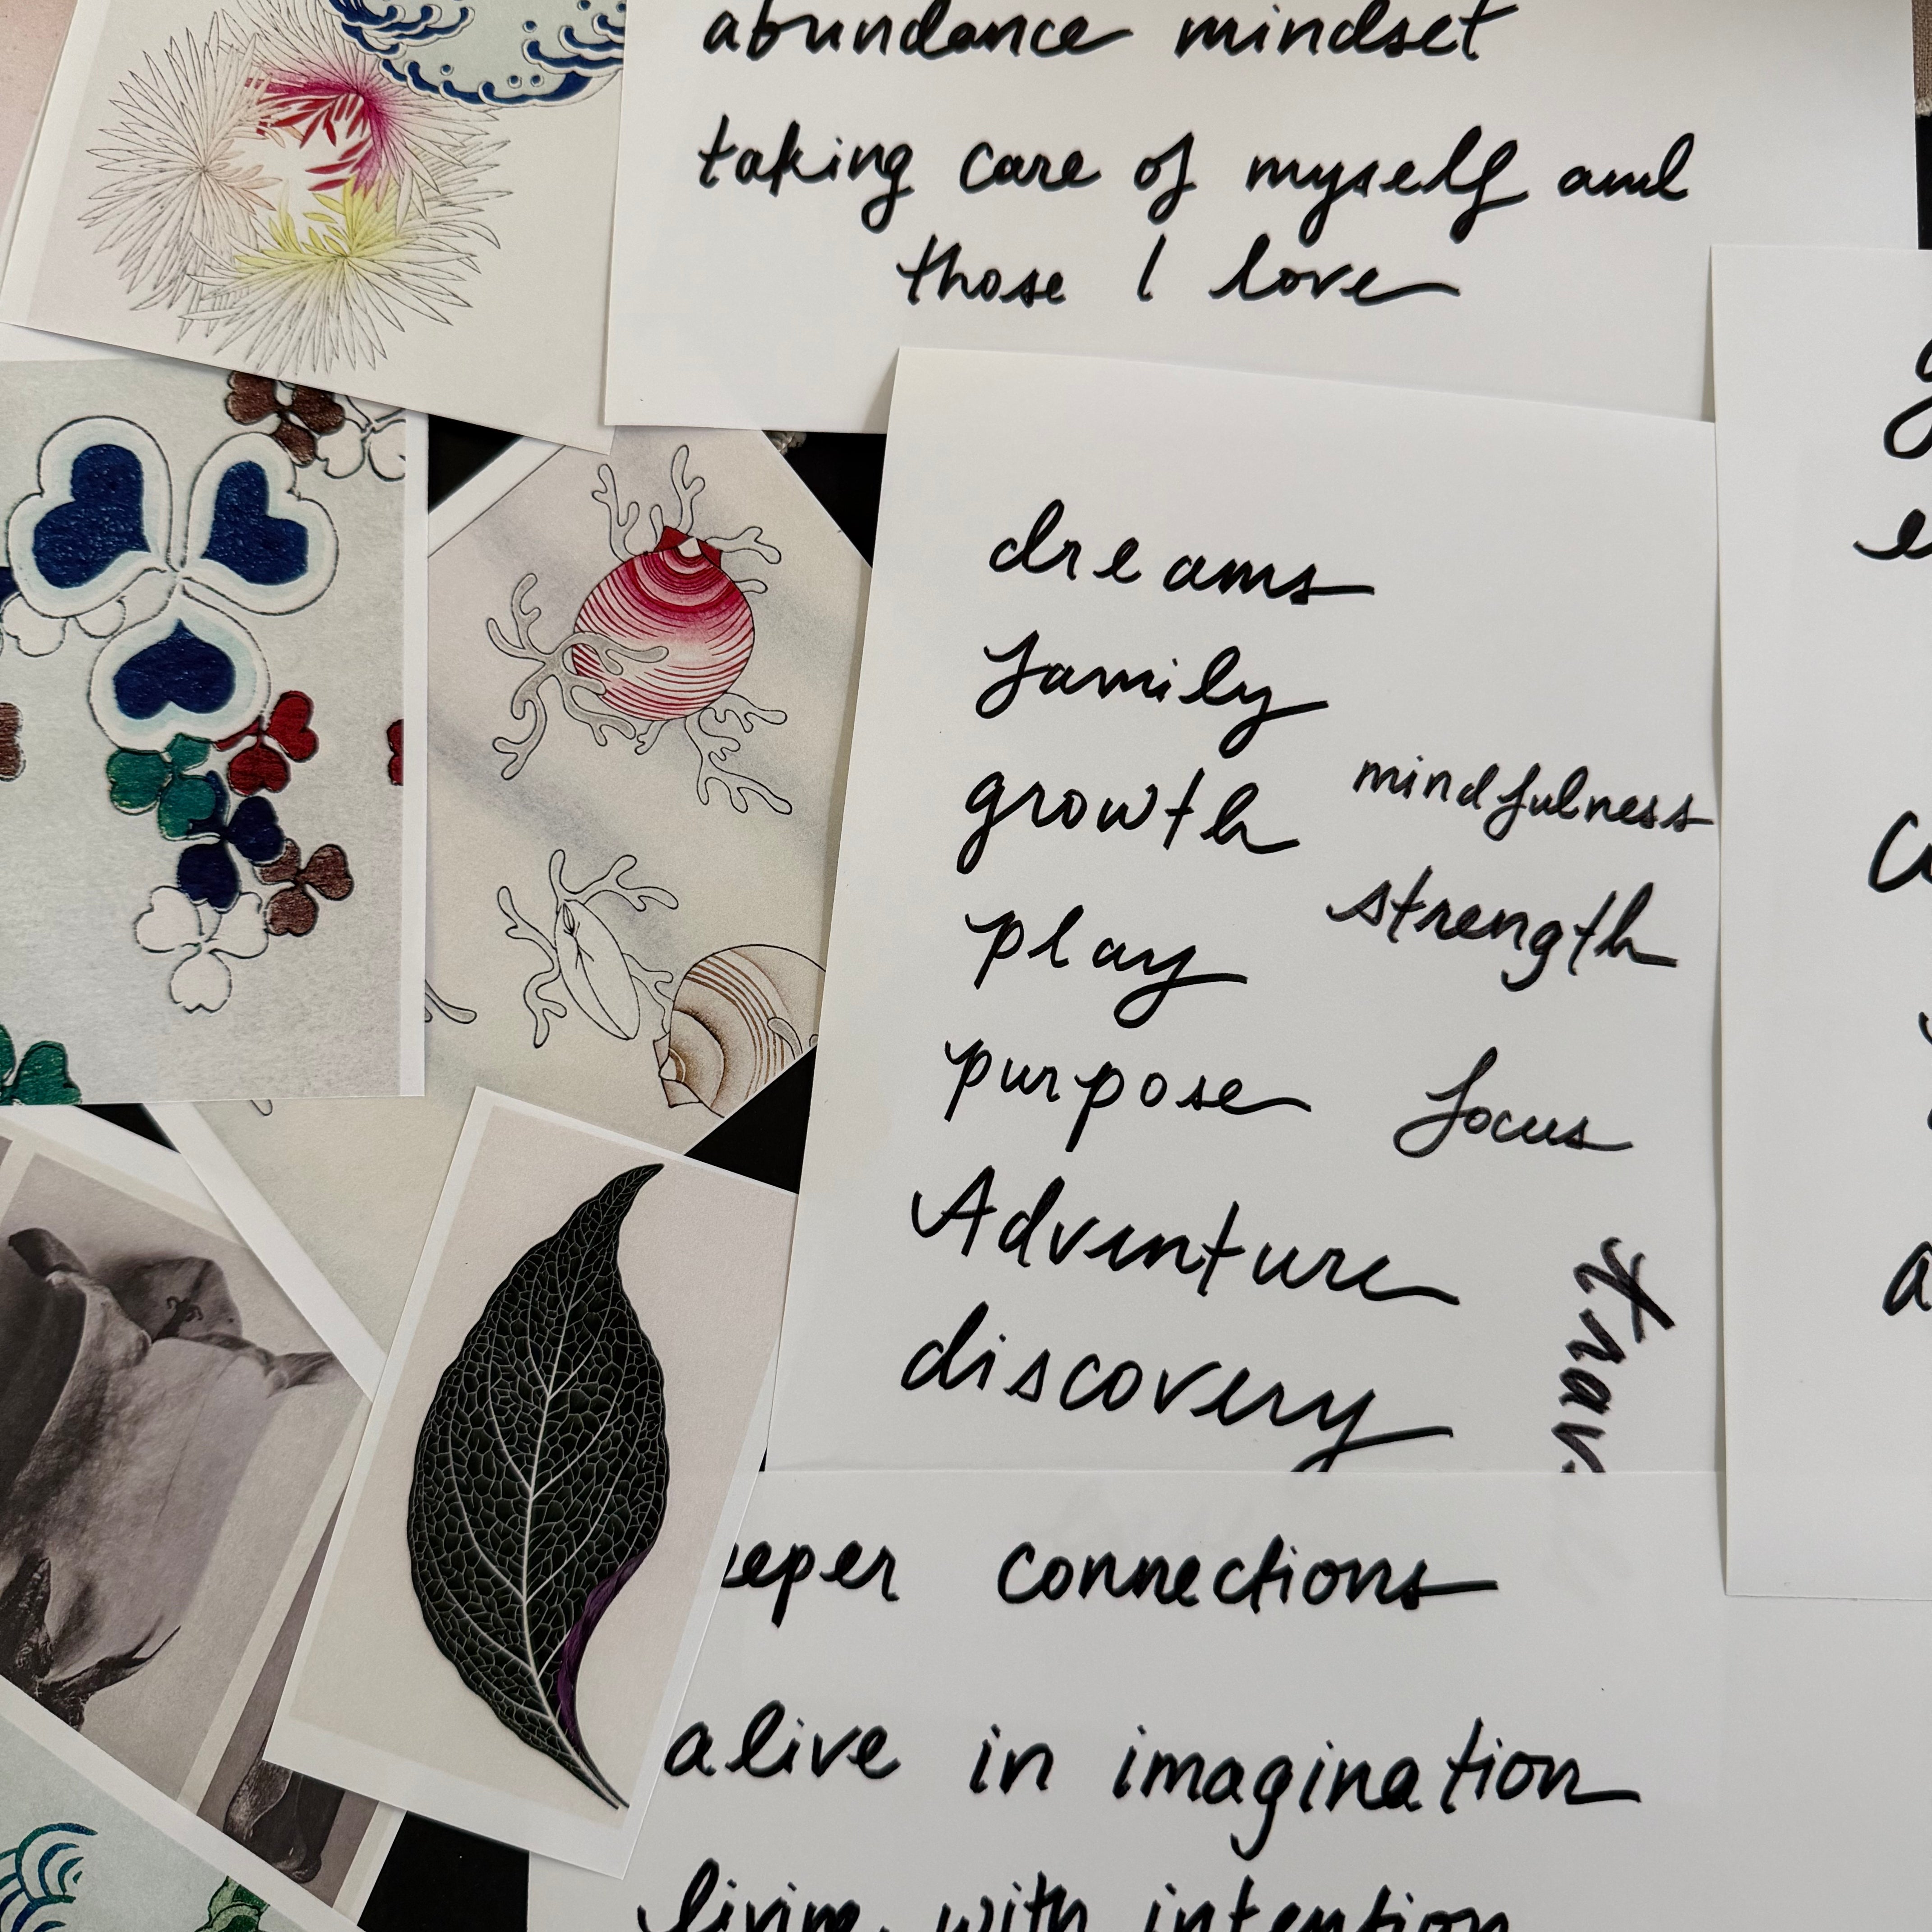 abundance mindset
taking care of myself and
those I love
dreams
family
growth mindfulness
play strength
purpose focus
Adventure
discovery
connections
alive in imagination
living with intention